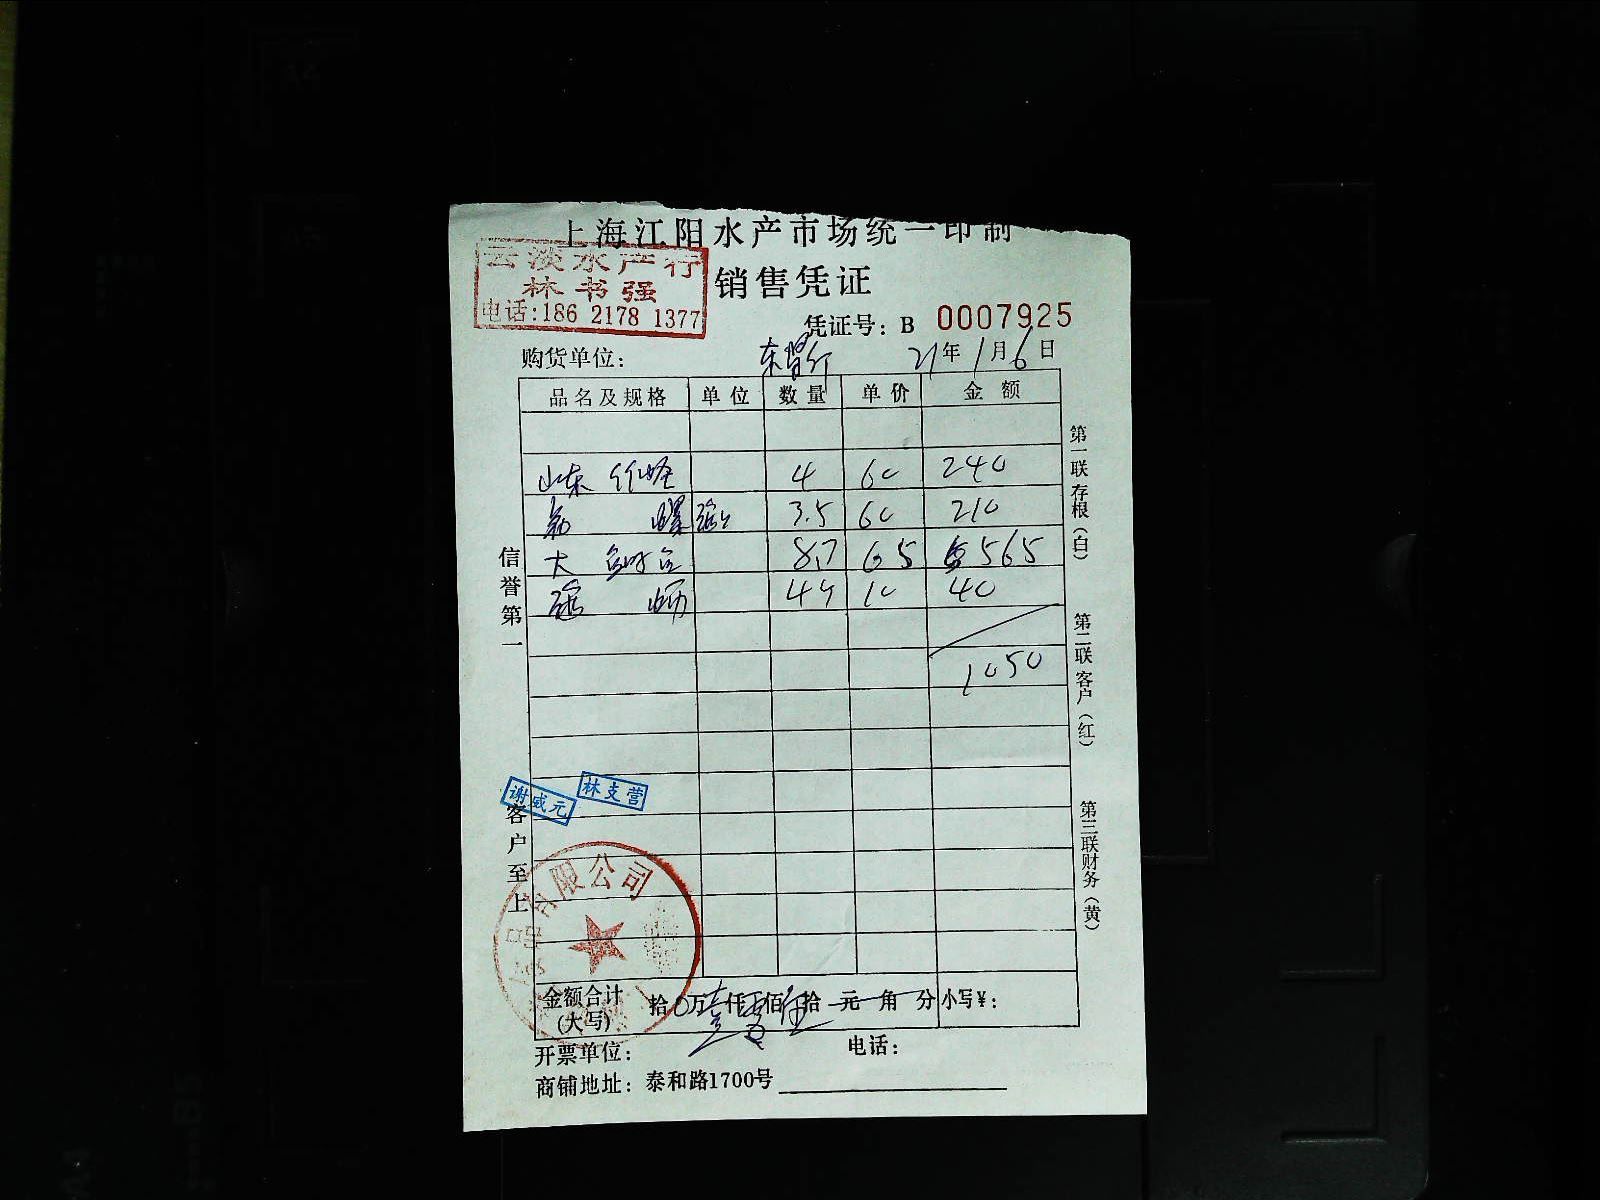 上海江阳水产市场统一印制
云淡水产行
林书强
电话:186 2178 1377
销售凭证
凭证号: B 0007925
购货单位:
21年1月6日
品名及规格 单位 数量 单价 金额
山东 4 60 240
3.5 60 210
大 8.7 65 565
10 40
1050
信誉第一
客户至上
第一联存根(白)
第二联客户(红)
第三联财务(黄)
谢威元
林支营
限公司
金额合计(大写) 拾 万 仟 佰 拾 元 角 分 小写¥:
开票单位:
电话:
商铺地址: 泰和路1700号